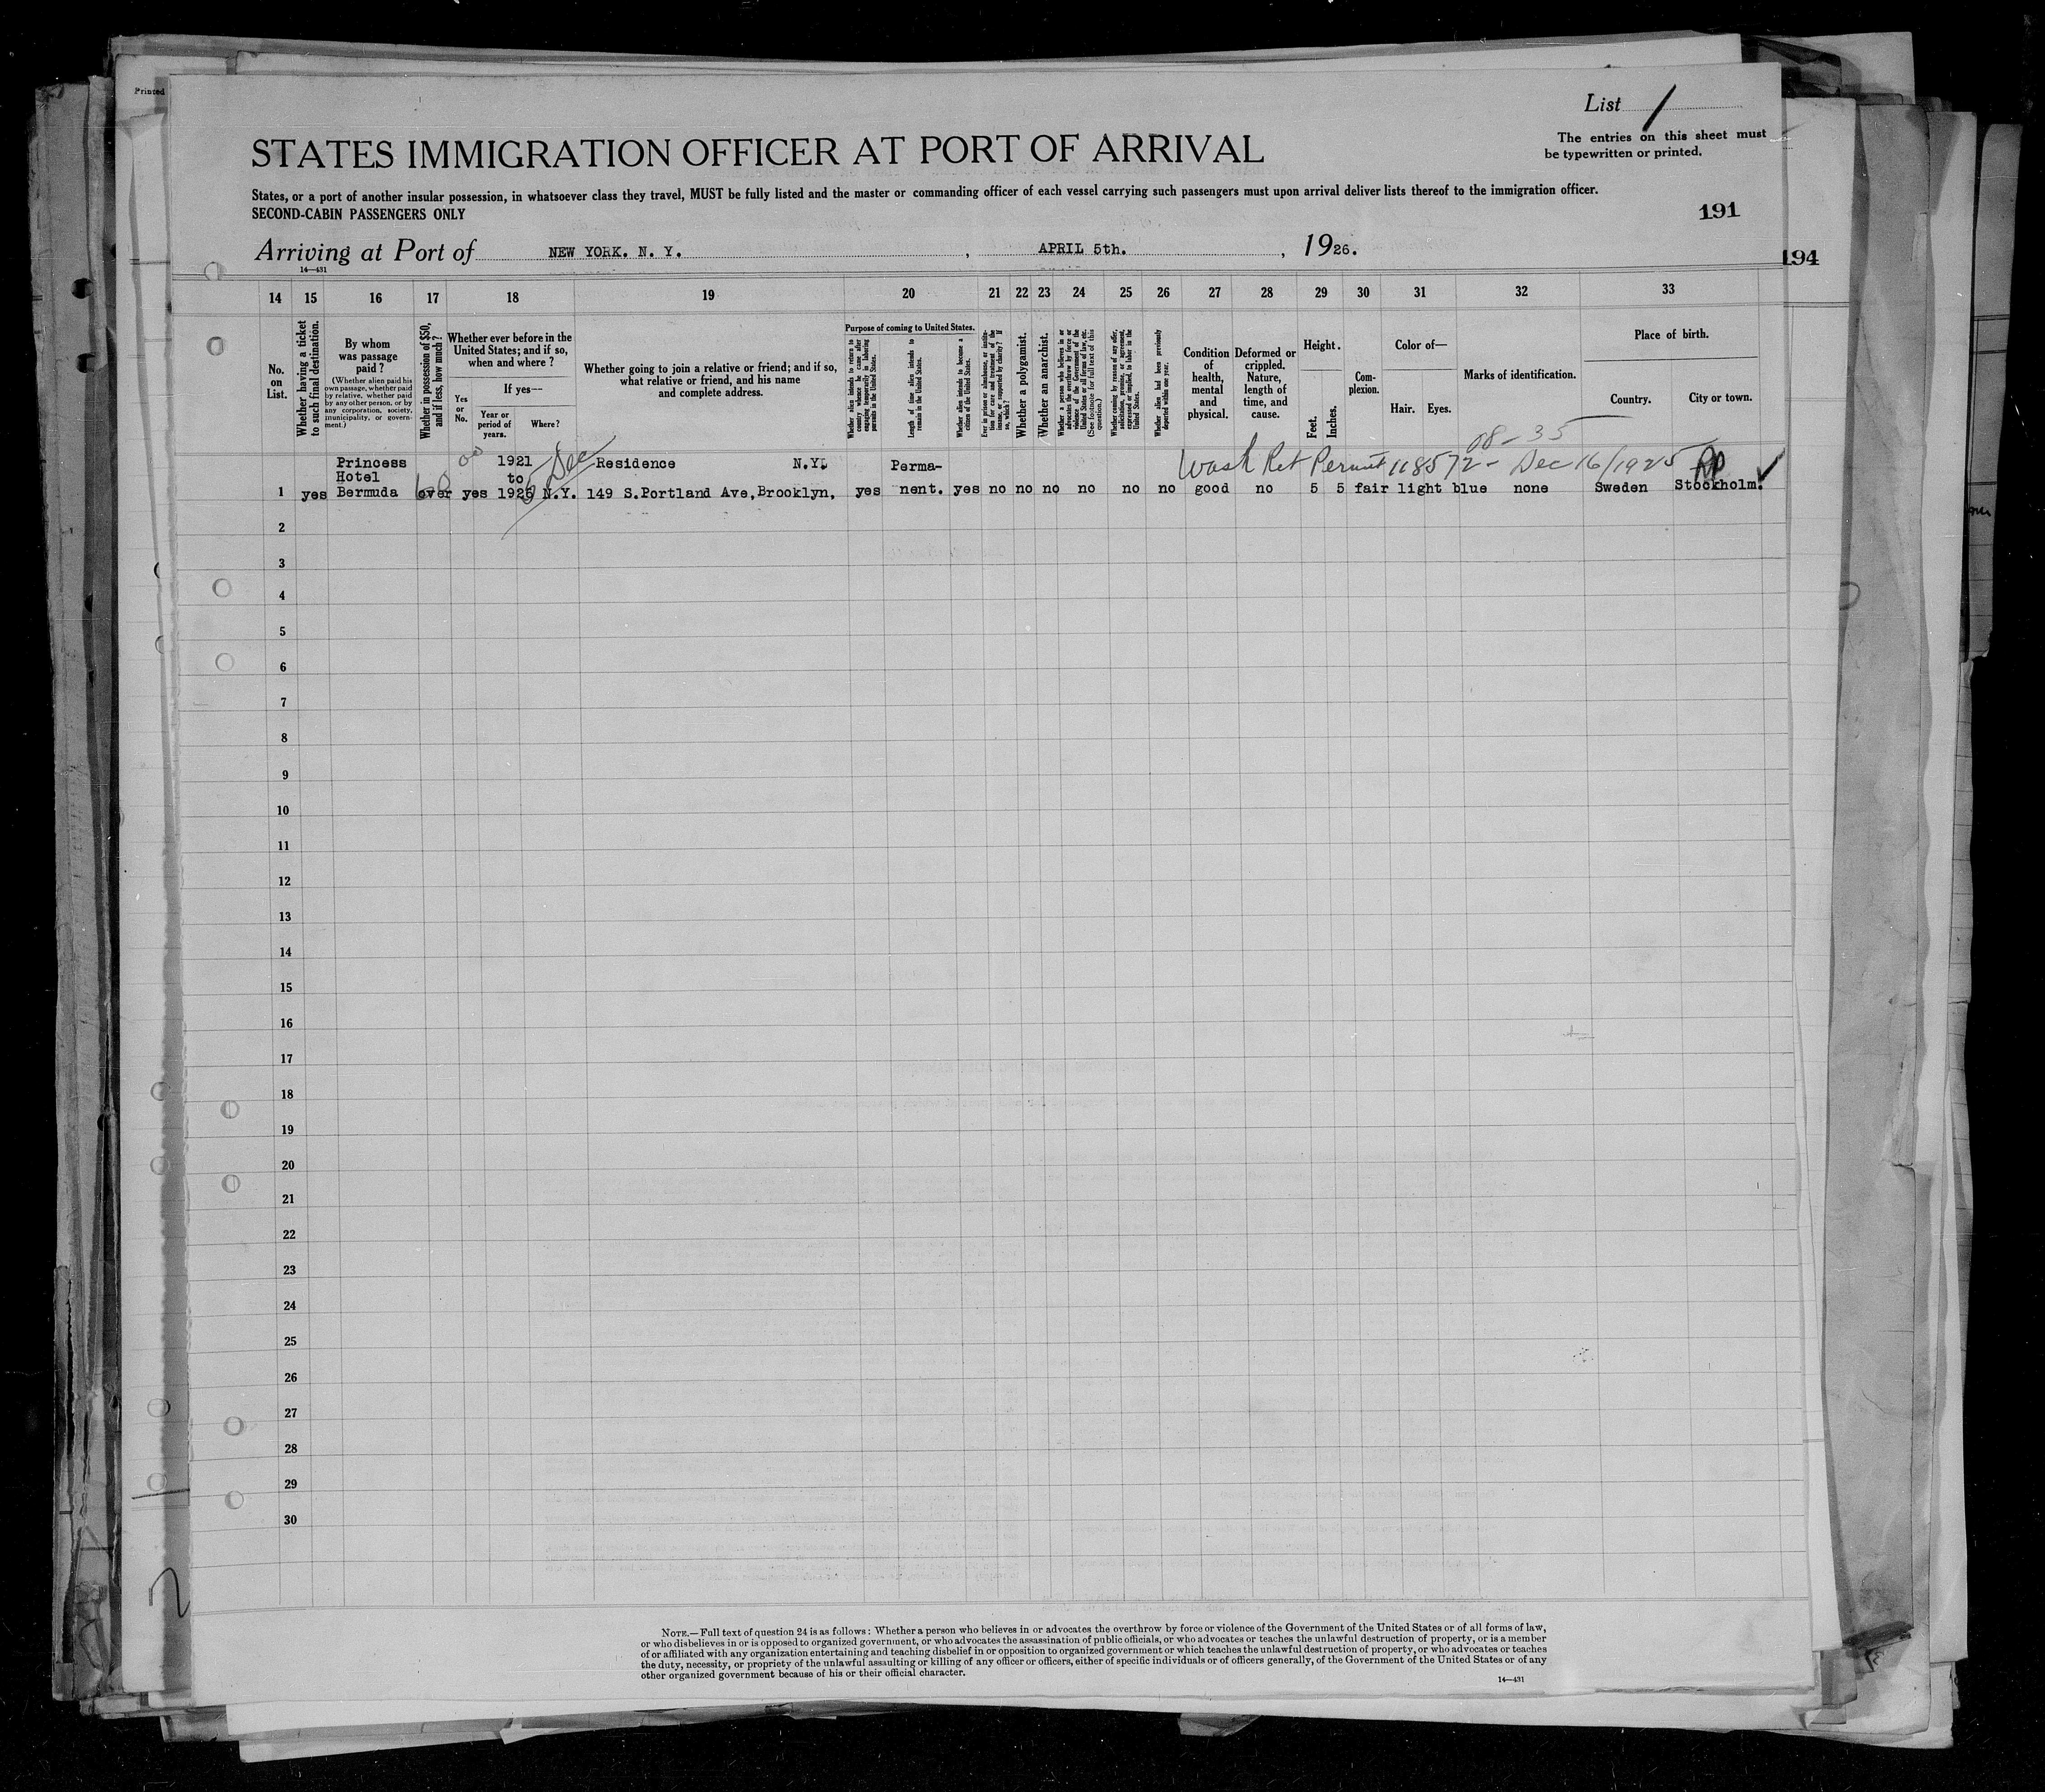 Printed
List 1
The entries on this sheet must
be typewritten or printed.
STATES IMMIGRATION OFFICER AT PORT OF ARRIVAL
States, or a port of another insular possession, in whatsoever class they travel, MUST be fully listed and the master or commanding officer of each vessel carrying such passengers must upon arrival deliver lists thereof to the immigration officer.
SECOND-CABIN PASSENGERS ONLY
191
Arriving at Port of NEW YORK. N. Y. , APRIL 5th. , 1926.
194
14—431
14 15 16 17 18 19 20 21 22 23 24 25 26 27 28 29 30 31 32 33
No.
on
List.
Whether having a ticket
to such final destination.
By whom
was passage
paid ?
(Whether alien paid his
own passage, whether paid
by relative, whether paid
by any other person, or by
any corporation, society,
municipality, or govern-
ment.)
Whether in possession of $50,
and if less, how much ?
Whether ever before in the
United States; and if so,
when and where ?
Yes
or
No.
If yes—
Year or
period of
years.
Where?
Whether going to join a relative or friend; and if so,
what relative or friend, and his name
and complete address.
Purpose of coming to United States.
Whether alien intends to return to
country whence he came after
engaging temporarily in laboring
pursuits in the United States.
Length of time alien intends to
remain in the United States.
Whether alien intends to become a
citizen of the United States.
Ever in prison or almshouse, or institu-
tion for care and treatment of the
insane, or supported by charity? If
so, which?
Whether a polygamist.
Whether an anarchist.
Whether a person who believes in or
advocates the overthrow by force or
violence of the Government of the
United States or all forms of law, etc.
(See footnote for full text of this
question.)
Whether coming by reason of any offer,
solicitation, promise, or agreement,
expressed or implied, to labor in the
United States.
Whether alien had been previously
deported within one year.
Condition
of
health,
mental
and
physical.
Deformed or
crippled.
Nature,
length of
time, and
cause.
Height.
Feet.
Inches.
Com-
plexion.
Color of—
Hair.
Eyes.
Marks of identification.
Place of birth.
Country.
City or town.
08-35
Dec
Wash Ret Permit 118572- Dec 16/1925
Princess 1921 Residence N.Y. Perma-
Hotel to
1 yes Bermuda over yes 1925 N.Y. 149 S.Portland Ave,Brooklyn, yes nent. yes no no no no no no good no 5 5 fair light blue none Sweden Stockholm.
2
3
4
5
6
7
8
9
10
11
12
13
14
15
16
17
18
19
20
21
22
23
24
25
26
27
28
29
30
NOTE.—Full text of question 24 is as follows: Whether a person who believes in or advocates the overthrow by force or violence of the Government of the United States or of all forms of law,
or who disbelieves in or is opposed to organized government, or who advocates the assassination of public officials, or who advocates or teaches the unlawful destruction of property, or is a member
of or affiliated with any organization entertaining and teaching disbelief in or opposition to organized government or which teaches the unlawful destruction of property, or who advocates or teaches
the duty, necessity, or propriety of the unlawful assaulting or killing of any officer or officers, either of specific individuals or of officers generally, of the Government of the United States or of any
other organized government because of his or their official character.
14—431